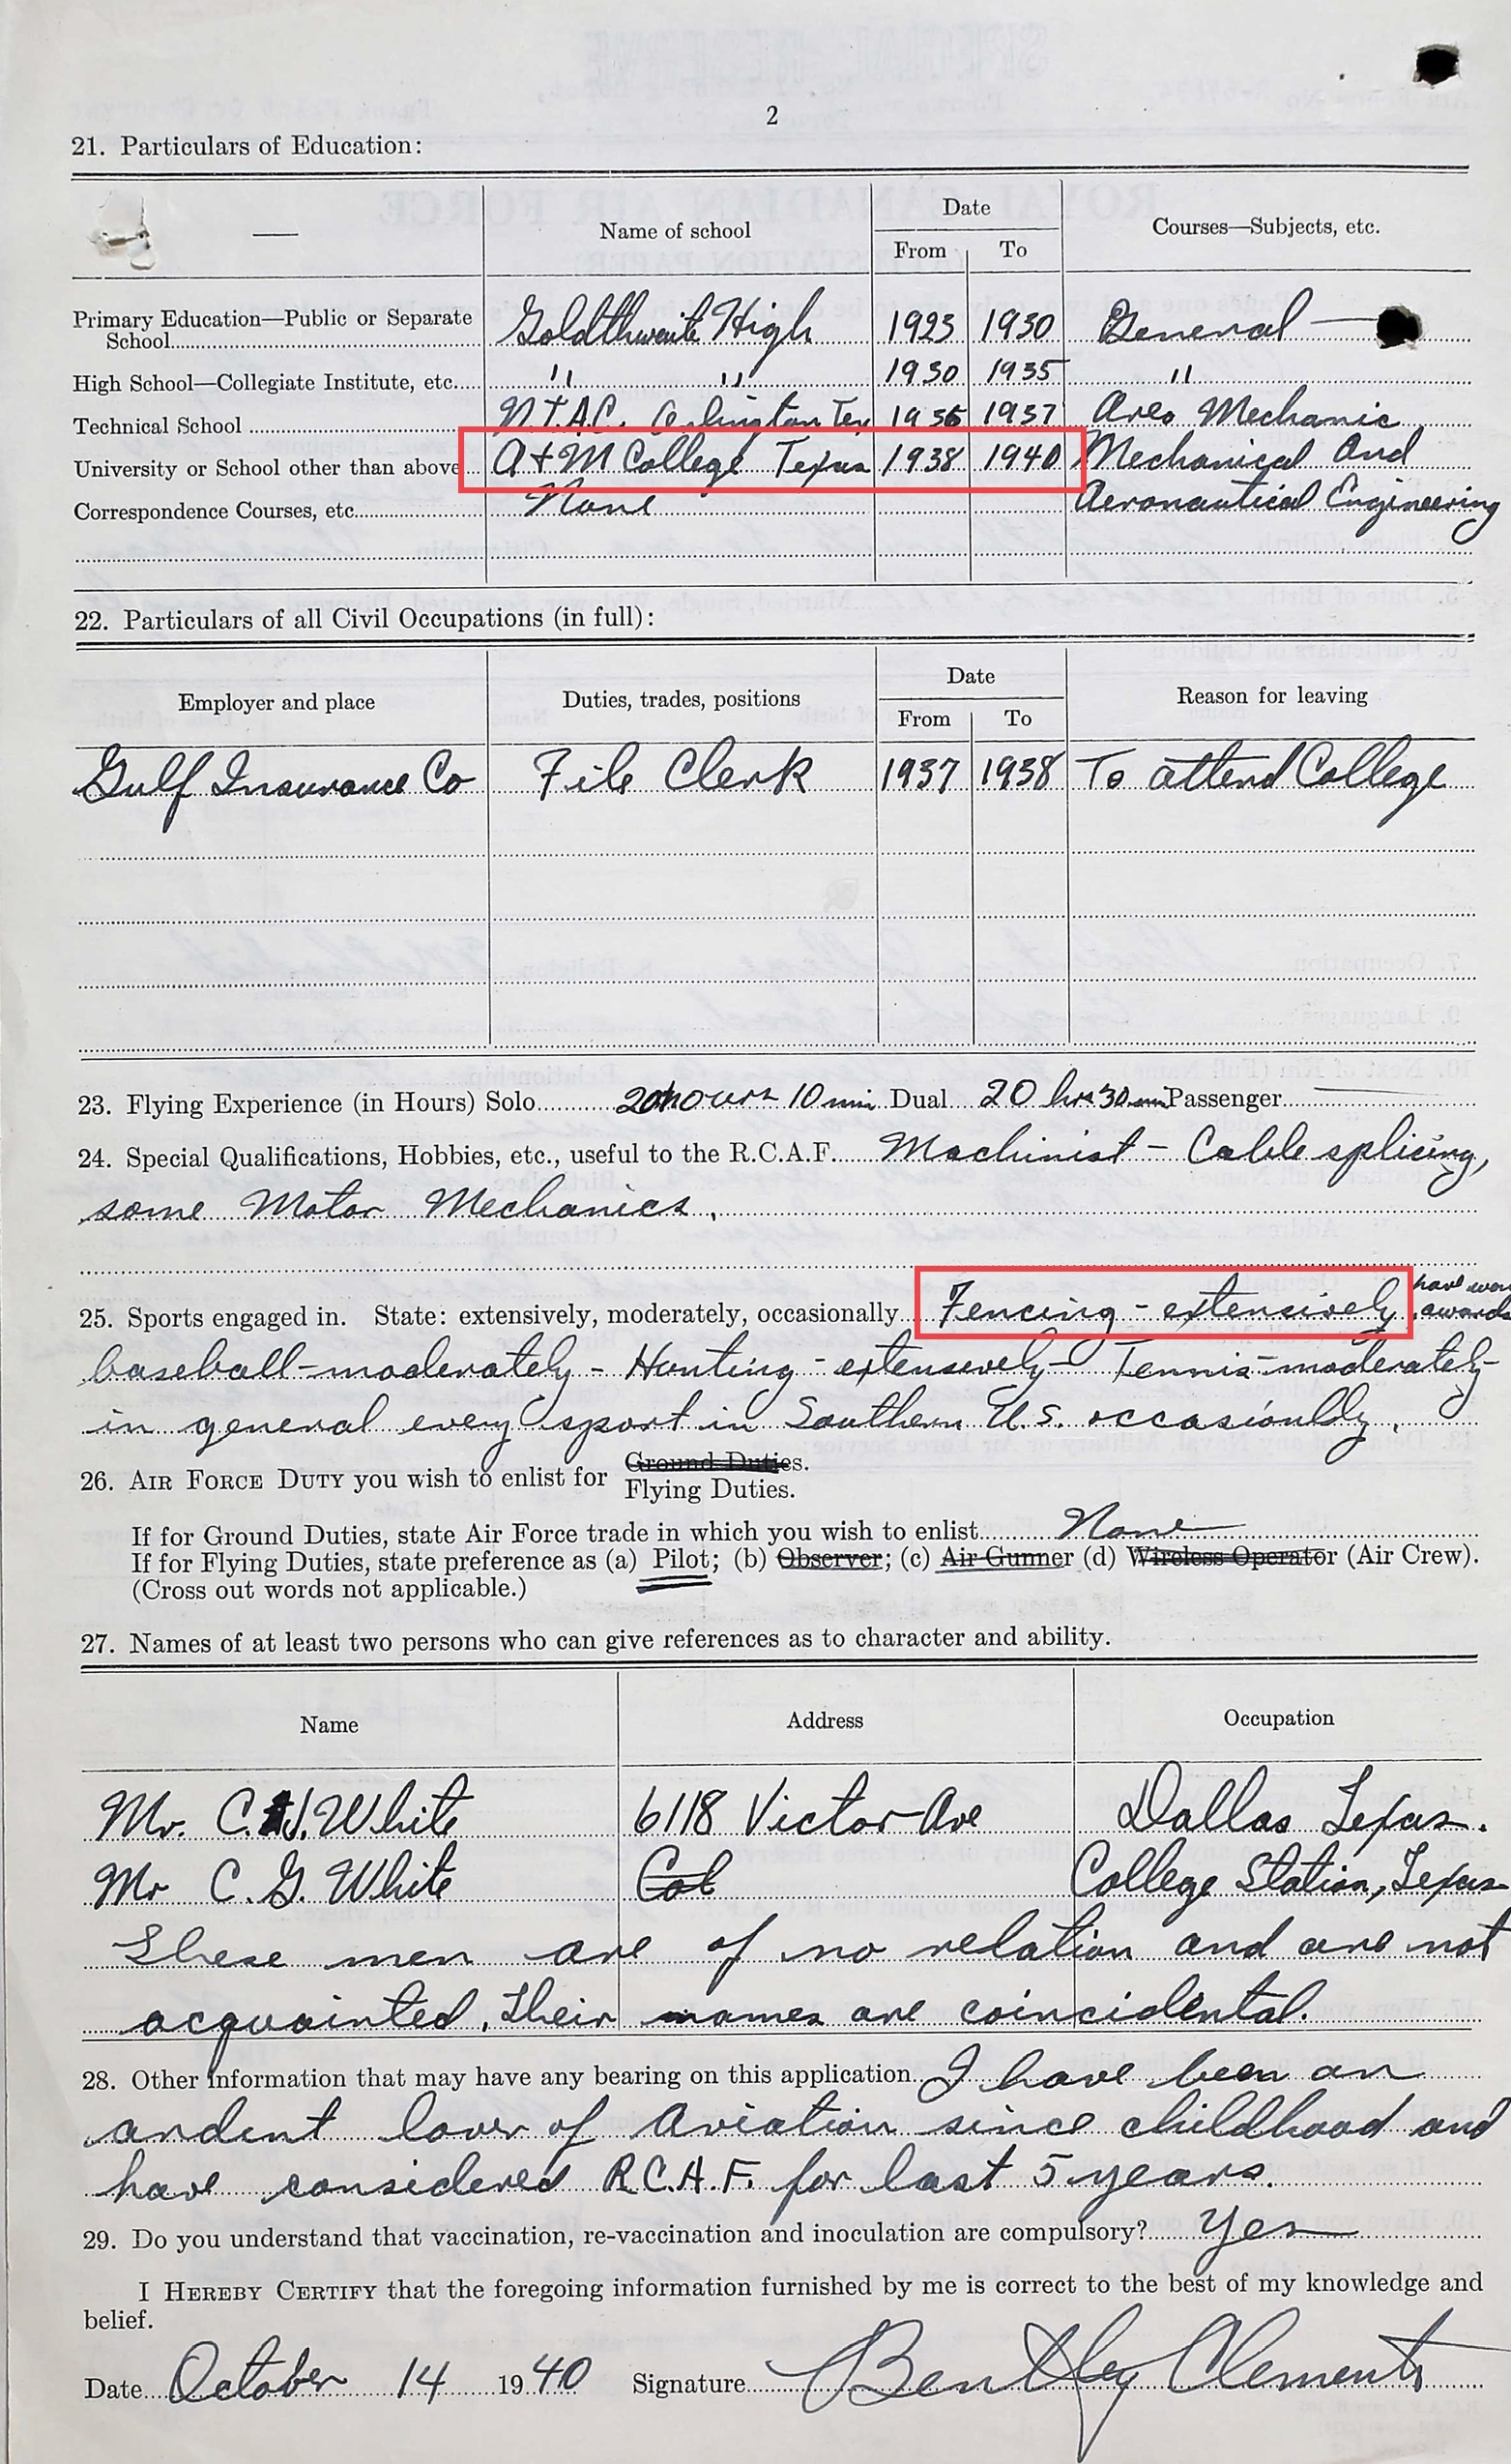 2
21. Particulars of Education:
— Name of school Date Courses—Subjects, etc.
From To
Primary Education—Public or Separate School Goldthwaite High 1923 1930 General —
High School—Collegiate Institute, etc. " " 1930 1935 "
Technical School N.T.A.C. Arlington Tex 1936 1937 Areo Mechanic
University or School other than above A+M College Texas 1938 1940 Mechanical And
Correspondence Courses, etc. None Aeronautical Engineering
22. Particulars of all Civil Occupations (in full):
Employer and place Duties, trades, positions Date Reason for leaving
From To
Gulf Insurance Co File Clerk 1937 1938 To attend College
23. Flying Experience (in Hours) Solo 20 hours 10 min Dual 20 hrs 30 min Passenger
24. Special Qualifications, Hobbies, etc., useful to the R.C.A.F. Machinist – Cable splicing,
some Motor Mechanics.
25. Sports engaged in. State: extensively, moderately, occasionally Fencing - extensively have won awards
baseball-moderately - Hunting - extensively - Tennis-moderately-
in general every sport in Southern U.S. occasionlly.
26. AIR FORCE DUTY you wish to enlist for Ground Duties.
Flying Duties.
If for Ground Duties, state Air Force trade in which you wish to enlist None
If for Flying Duties, state preference as (a) Pilot; (b) Observer; (c) Air Gunner (d) Wireless Operator (Air Crew).
(Cross out words not applicable.)
27. Names of at least two persons who can give references as to character and ability.
Name Address Occupation
Mr. C. J. White 6118 Victor Ave Dallas Texas.
Mr C. G. White Col College Station, Texas
These men are of no relation and are not
acquainted. Their names are coincidental.
28. Other information that may have any bearing on this application I have been an
ardent lover of Aviation since childhood and
have considered R.C.A.F. for last 5 years.
29. Do you understand that vaccination, re-vaccination and inoculation are compulsory? Yes
I HEREBY CERTIFY that the foregoing information furnished by me is correct to the best of my knowledge and
belief.
Date October 14 1940 Signature Bentley Clements